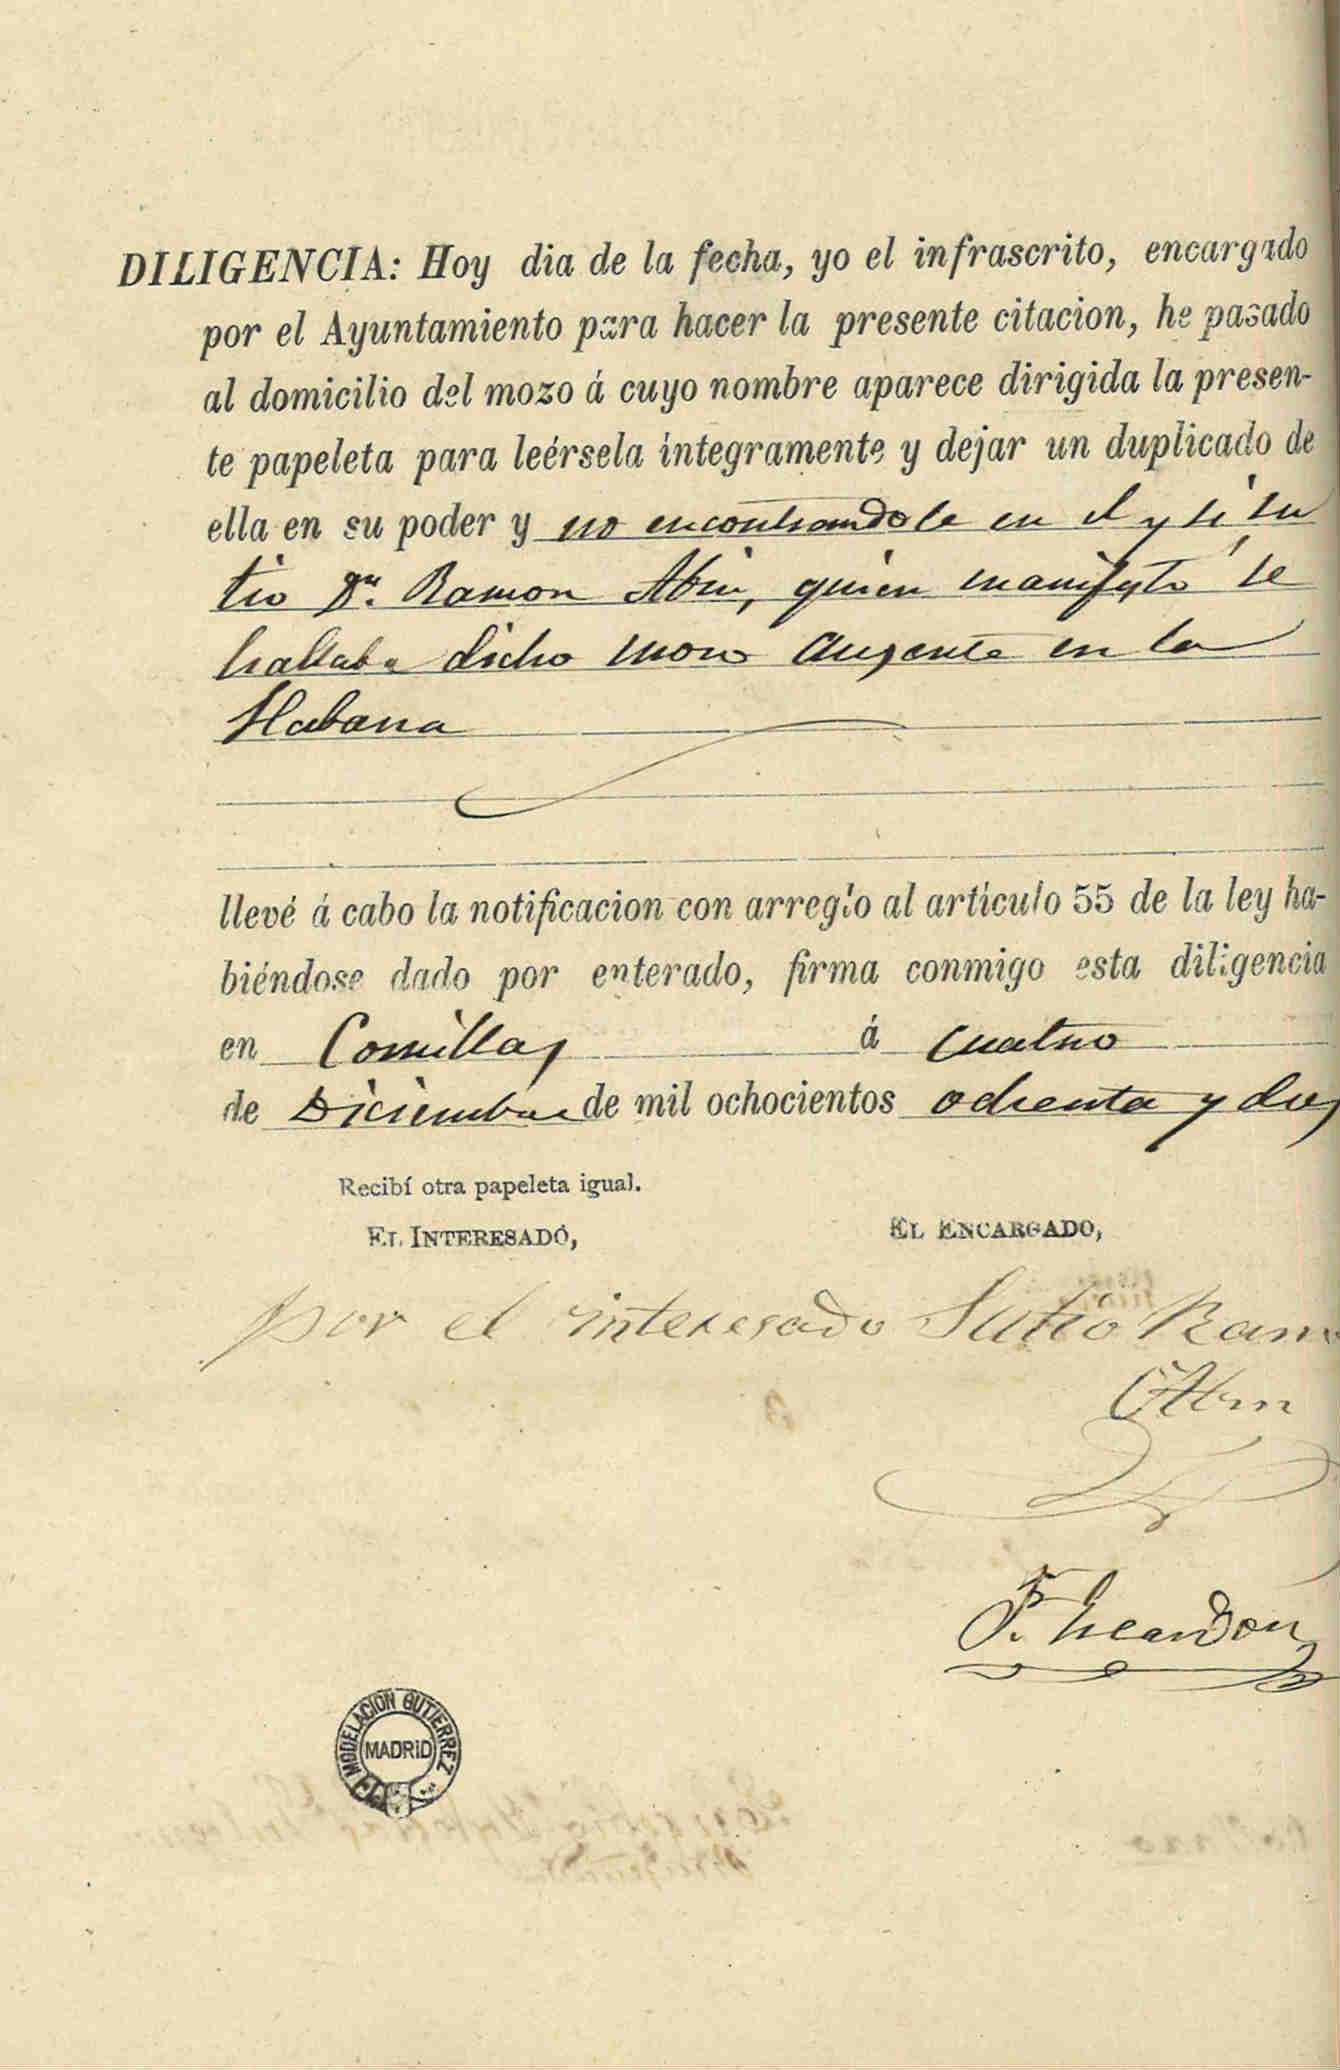 DILIGENCIA: Hoy dia de la fecha, yo el infrascrito, encargado
por el Ayuntamiento para hacer la presente citacion, he pasado
al domicilio del mozo á cuyo nombre aparece dirigida la presen-
te papeleta para leérsela integramente y dejar un duplicado de
ella en su poder y no encontrandole en el y si su
tio Dn. Ramon Abin, quien manifestó se
hallaba dicho mozo ausente en la
Habana
llevé á cabo la notificacion con arreglo al artículo 55 de la ley ha-
biéndose dado por enterado, firma conmigo esta diligencia
en Comillas á cuatro
de Diciembre de mil ochocientos ochenta y dos
Recibí otra papeleta igual.
EL INTERESADO,
EL ENCARGADO,
por el interesado Sutio Ramo
Abin
MODELACION GUTIERREZ
MADRID